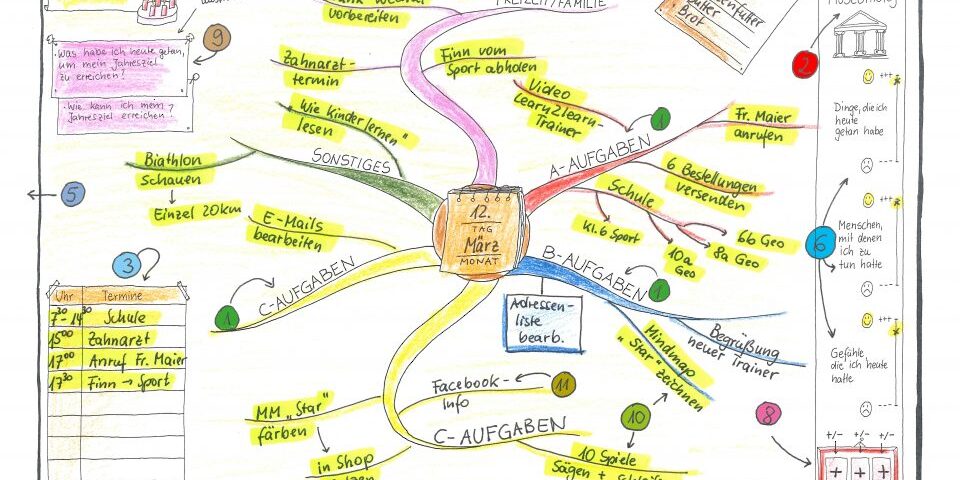 vorbereiten
FREIZEIT/FAMILIE
Brot
9
Was habe ich heute getan,
um mein Jahresziel
zu erreichen?
Wie kann ich mein
Jahresziel erreichen?
Zahnarzt-
termin
Finn vom
Sport abholen
2
+++
Dinge, die ich
heute
getan habe
Video
Learn2learn-
Trainer
1
A-AUFGABEN
Fr. Maier
anrufen
6 Bestellungen
versenden
Schule
Kl.6 Sport
10a
Geo
8a Geo
6b Geo
"Wie Kinder lernen"
lesen
SONSTIGES
Biathlon
schauen
Einzel 20km
5
E-Mails
bearbeiten
12.
TAG
März
MONAT
+++
Menschen,
mit denen
ich zu
tun hatte
6
3
Uhr Termine
7³⁰-14³⁰ Schule
15⁰⁰ Zahnarzt
17⁰⁰ Anruf Fr. Maier
17³⁰ Finn → Sport
C-AUFGABEN
1
B-AUFGABEN
1
Adressen-
liste
bearb.
Mindmap
"Star"
zeichnen
Begrüßung
neuer Trainer
+++
Gefühle,
die ich heute
hatte
Facebook-
Info
11
MM "Star"
färben
in Shop
C-AUFGABEN
10
10 Spiele
Sägen +
8
+/- +/- +/-
+ + +